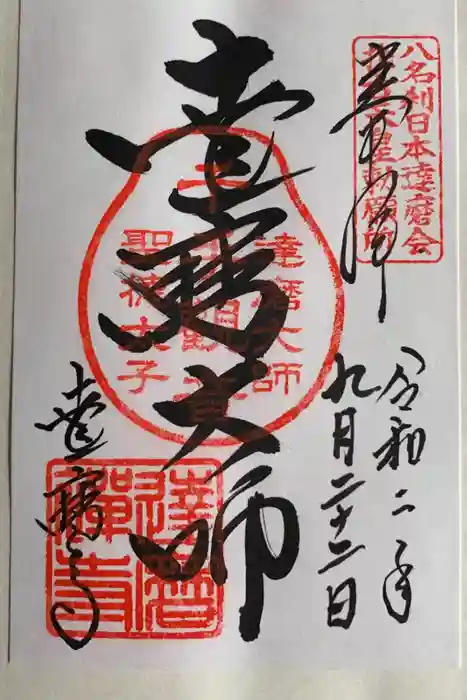 八名刹日本達磨会
奉拝
令和二年
九月二十二日
達磨大師
達磨大師
千手観音
聖徳太子
達磨寺
達磨
禪寺